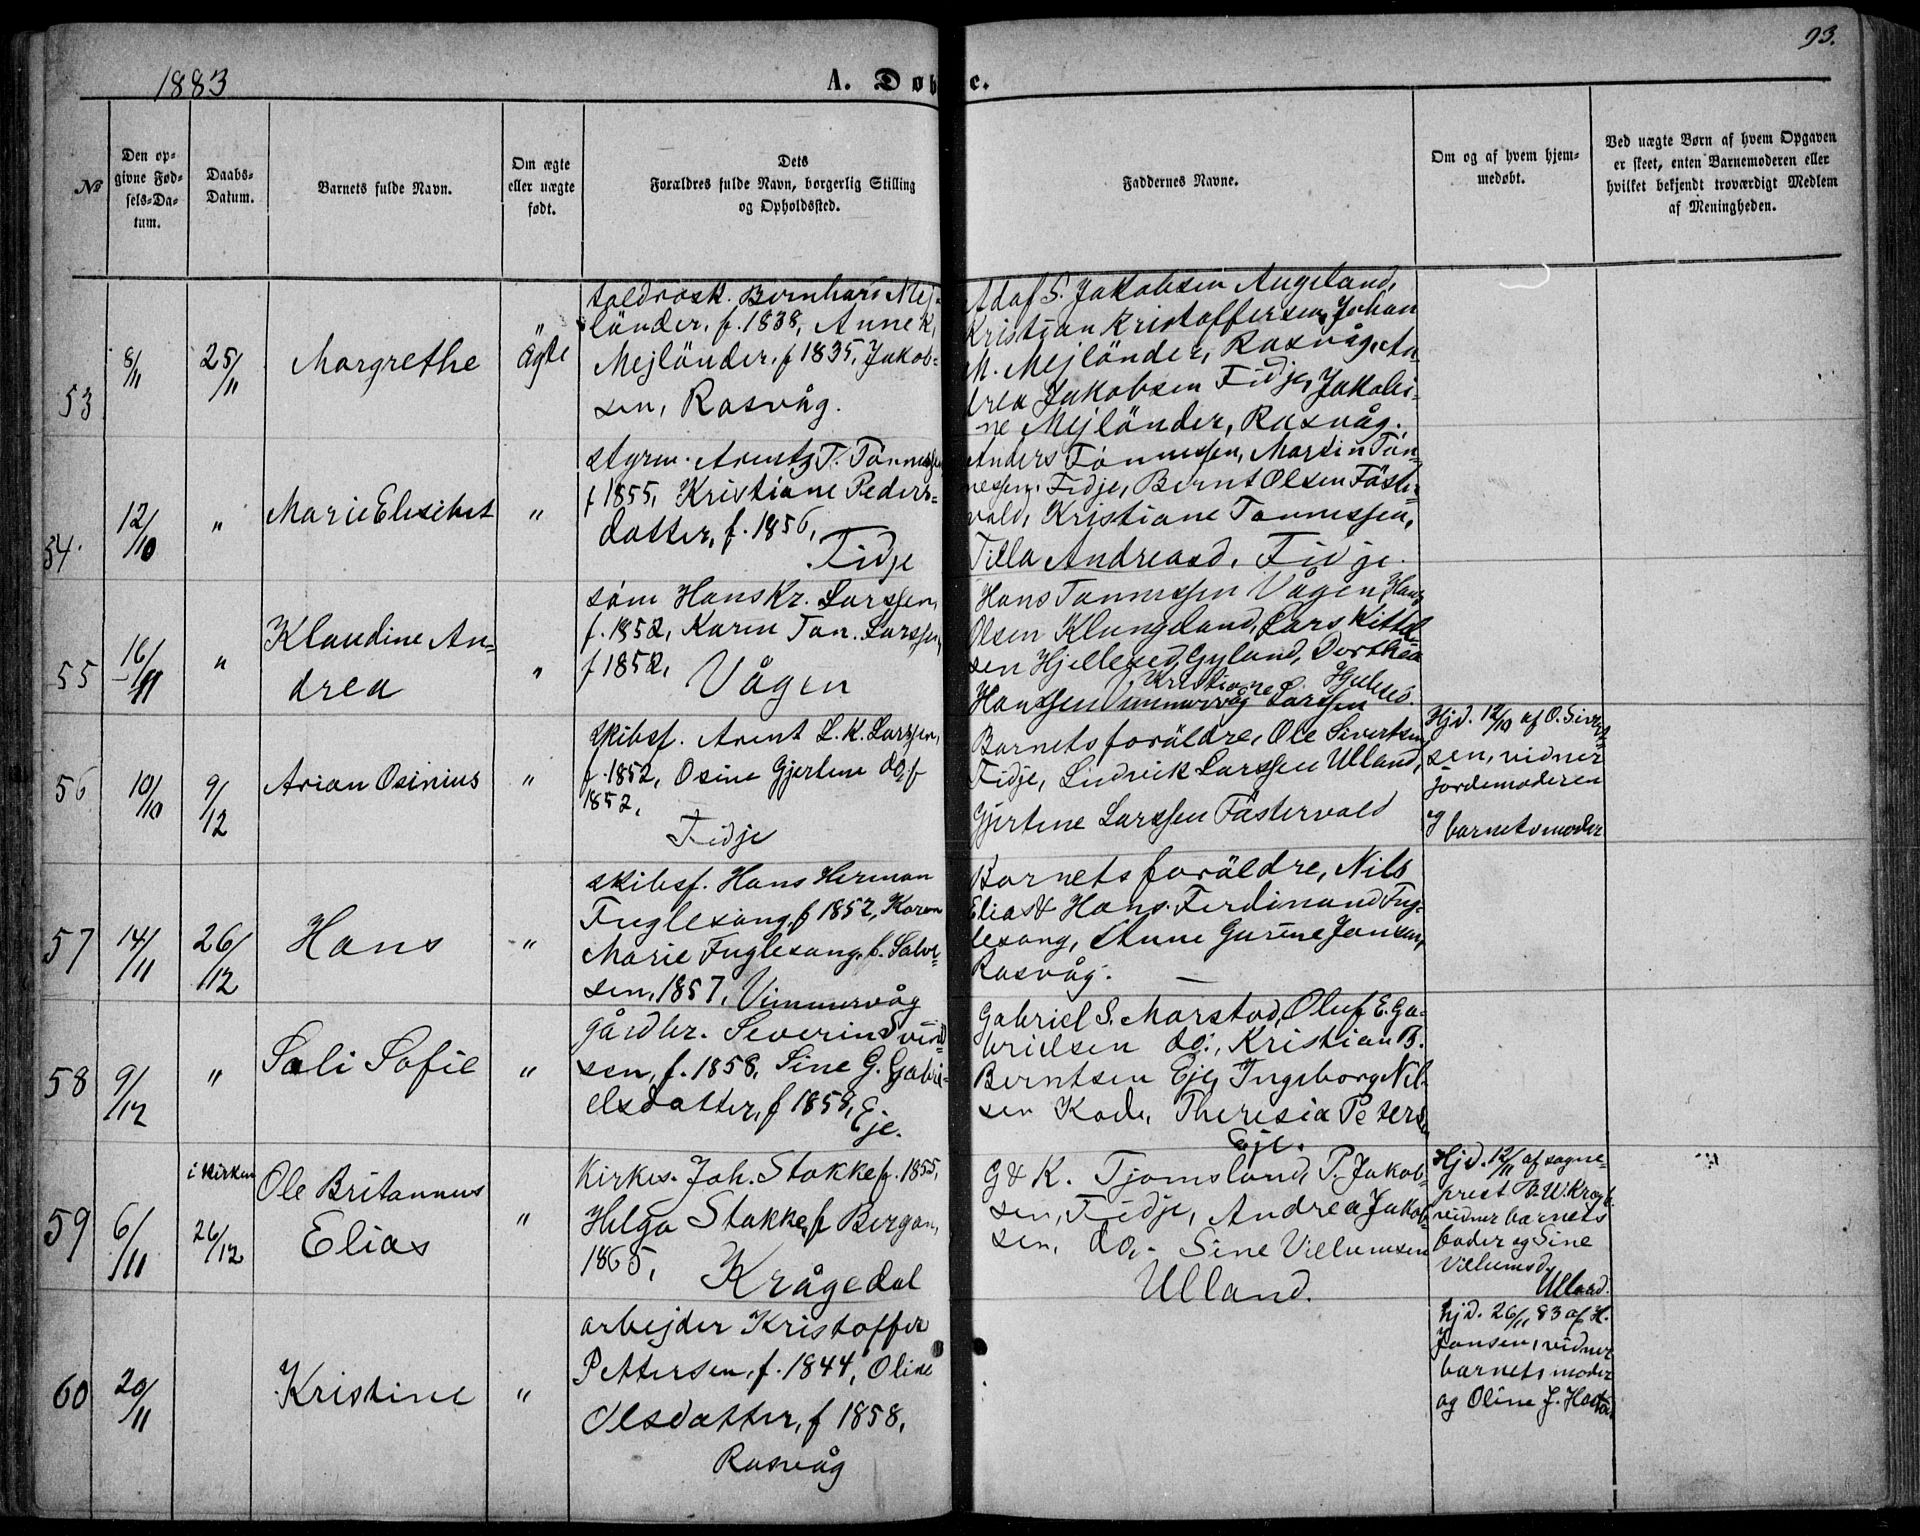 1883
A. Døbte.
93.
No
Den opgivne Fødsels-Datum.
Daabs-Datum.
Barnets fulde Navn.
Om ægte eller uægte født.
Dets Forældres fulde Navn, borgerlig Stilling og Opholdssted.
Faddernes Navne.
Om og af hvem hjemmedøbt.
Ved uægte Børn af hvem Opgaven er skeet, enten Barnemoderen eller hvilket bekjendt troværdigt Medlem af Meningheden.
53
8/11
25/11
Margrethe
ägte
Bernhard Mej-
länder, f. 1838, Anne K.
Mejländer, f 1835, Jakob-
sen, Rasvåg.
Adof S. Jakobsen Augeland,
Kristian Kristoffersen, Johan
M. Mejländer, Rasvåg, An
drea Jakobsen Fidje, Jakobi-
ne Mejländer, Rasvåg.
54.
12/10
"
Marie Elisibet
"
styrm. Arentz T. Tönnessen
f 1855, Kristiane Peders-
datter, f. 1856,
Fidje
Anders Tönnessen, Martin Tön-
nessen, Fidje, Bernt Olsen Fäster-
vald, Kristiane Tönnessen,
Tilla Andreasd, Fidje.
55
16/11
"
Klaudine An-
drea
"
söm Hans Kr. Larssen,
f. 1852, Karen Tön. Larssen,
f 1852,
Vågen
Hans Tönnessen Vågen, Hans
Olsen Klungeland, Lars Kittel-
sen Hjellesed, Gyland, Dorthea
Kristiane Hjelsed.
Hanssen Vimmervåg Larssen
56
10/10
9/12
Arian Osinius
"
skibsf. Arent L. K. Larssen,
f. 1852, Osine Gjertine do, f
1852,
Fidje
Barnets foräldre, Ole Sivertsen
Fidje, Ludvik Larssen Ulland,
Gjertine Larssen Fästervald
Hjd. 12/10 af O. Sivert-
sen, vidner
Jordemoderen
og barnets moder
57
14/11
26/12
Hans
"
skibsf. Hans Herman
Fuglesang, f 1852, Karen
Marie Fuglesang, f. Salve-
sen, 1857, Vimmervåg
Barnets foräldre, Nils
Elias & Hans Ferdinand Fug-
lesang, Anne Gurine Jansen,
Rasvåg.
58
9/12
"
Sali Sofie
"
gårdbr. Severin Svend-
sen, f. 1858, Sine G. Gabri-
elsdatter, f 1858, Eje.
Gabriel S. Marstad, Oluf E. Ga-
brielsen do., Kristian B.
Berntsen Eje, Ingeborg Nil-
sen Kode, Theresia Peters
Eje.
59
6/11
i kirken
26/12
Ole Britannus
Elias
"
Kirkes. Joh. Stakke f. 1855,
Helga Stakke, f Bergan,
1865,
Krågedal
G & K. Tjomsland, P. Jakob-
sen, Fidje, Andrea Jakob-
sen, do. Sine Villumsen
Ulland.
Hjd. 12/11 af sogne-
prest B. W. Krogh.
vidner barnets
fader og Sine
Villumsd.
Ulland.
60
20/11
Kristine
"
arbejder Kristoffer
Pettersen, f. 1844, Oline
Olsdatter, f 1858,
Rasvåg
hjd. 26/11 83 af H.
Jansen, vidner
barnets moder
og Oline J.